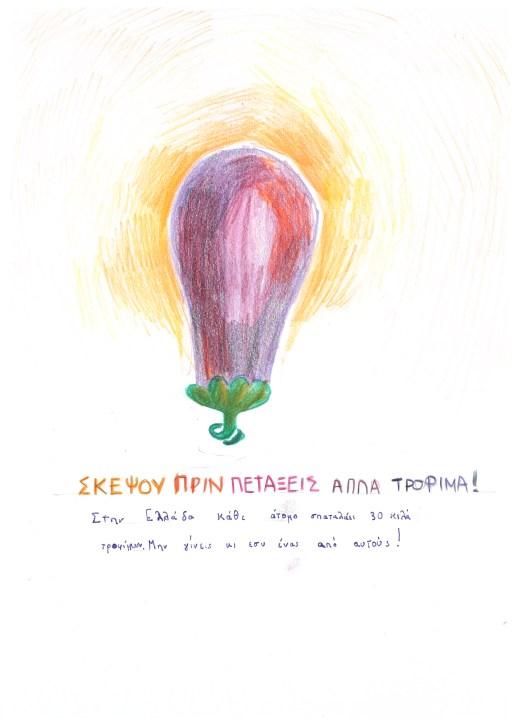 ΣΚΕΨΟΥ ΠΡΙΝ ΠΕΤΑΞΕΙΣ ΑΠΛΑ ΤΡΟΦΙΜΑ!
Στην Ελλάδα κάθε άτομο σπαταλάει 30 κιλά
τροφίμων. Μην γίνεις κι εσυ ένας από αυτούς!